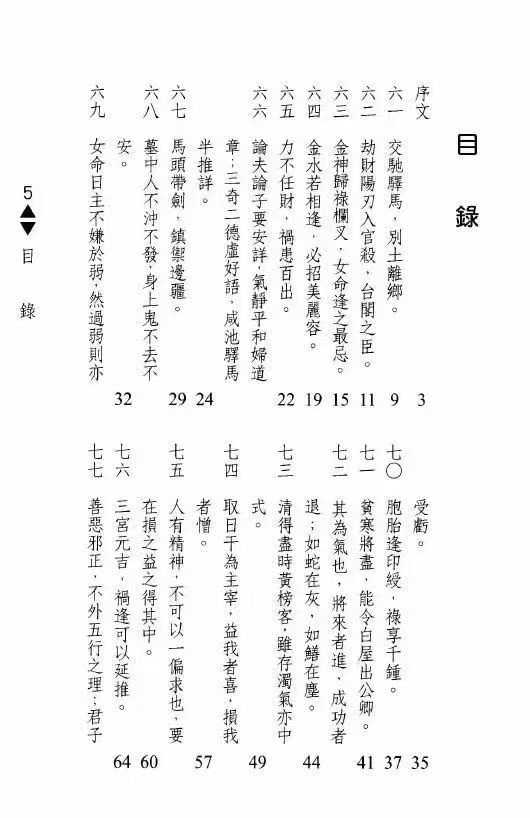 目錄
序文 3
六一 交馳驛馬，別土離鄉。 9
六二 劫財陽刃入官殺，台閣之臣。 11
六三 金神歸祿欄叉，女命逢之最忌。 15
六四 金水若相逢，必招美麗容。 19
六五 力不任財，禍患百出。 22
六六 論夫論子要安詳，氣靜平和婦道
章；三奇二德虛好語，咸池驛馬
半推詳。 24
六七 馬頭帶劍，鎮禦邊疆。 29
六八 墓中人不沖不發，身上鬼不去不
安。 32
六九 女命日主不嫌於弱，然過弱則亦
受虧。 35
七〇 胞胎逢印綬，祿享千鍾。 37
七一 貧寒將盡，能令白屋出公卿。 41
七二 其為氣也，將來者進，成功者
退；如蛇在灰，如鱔在塵。 44
七三 清得盡時黃榜客，雖存濁氣亦中
式。 49
七四 取日干為主宰，益我者喜，損我
者憎。 57
七五 人有精神，不可以一偏求也，要
在損之益之得其中。 60
七六 三宮元吉，禍逢可以延推。 64
七七 善惡邪正，不外五行之理；君子
5
目錄